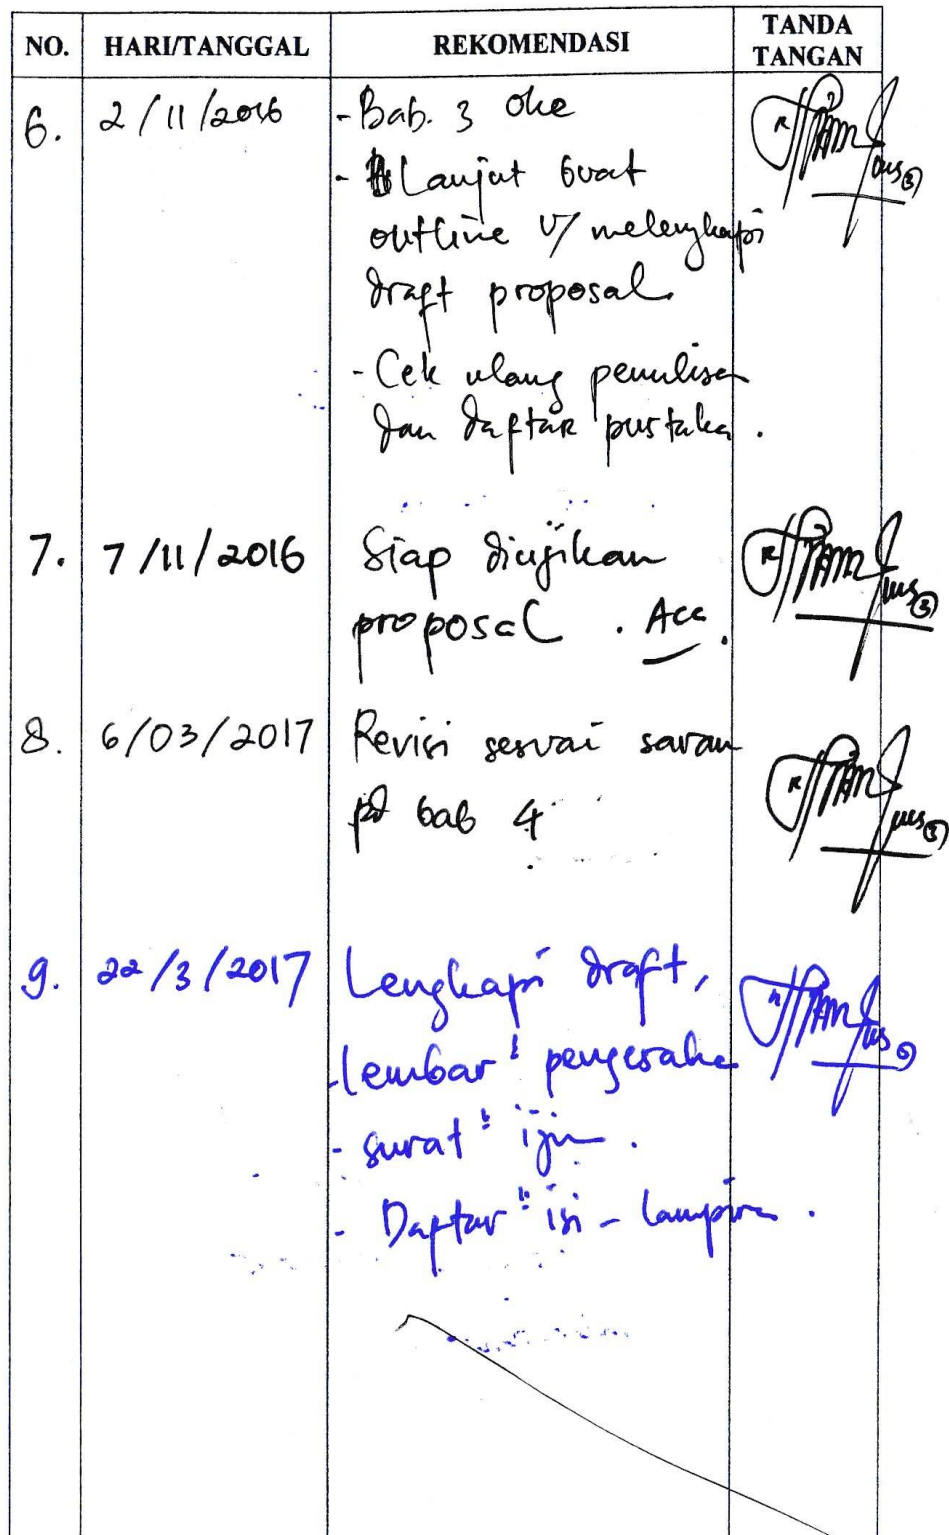 NO. HARI/TANGGAL REKOMENDASI TANDA TANGAN
6. 2/11/2016 - Bab. 3 oke
- Lanjut buat
outline u/ melengkapi
draft proposal
- Cek ulang penulisan
dan daftar pustaka.
7. 7/11/2016 Siap diujikan
proposal. Acc.
8. 6/03/2017 Revisi sesuai saran
pd bab 4
9. 22/3/2017 Lengkapi draft,
- lembar" pengesaha
- surat" ijin.
- Daftar" isi - lampira.